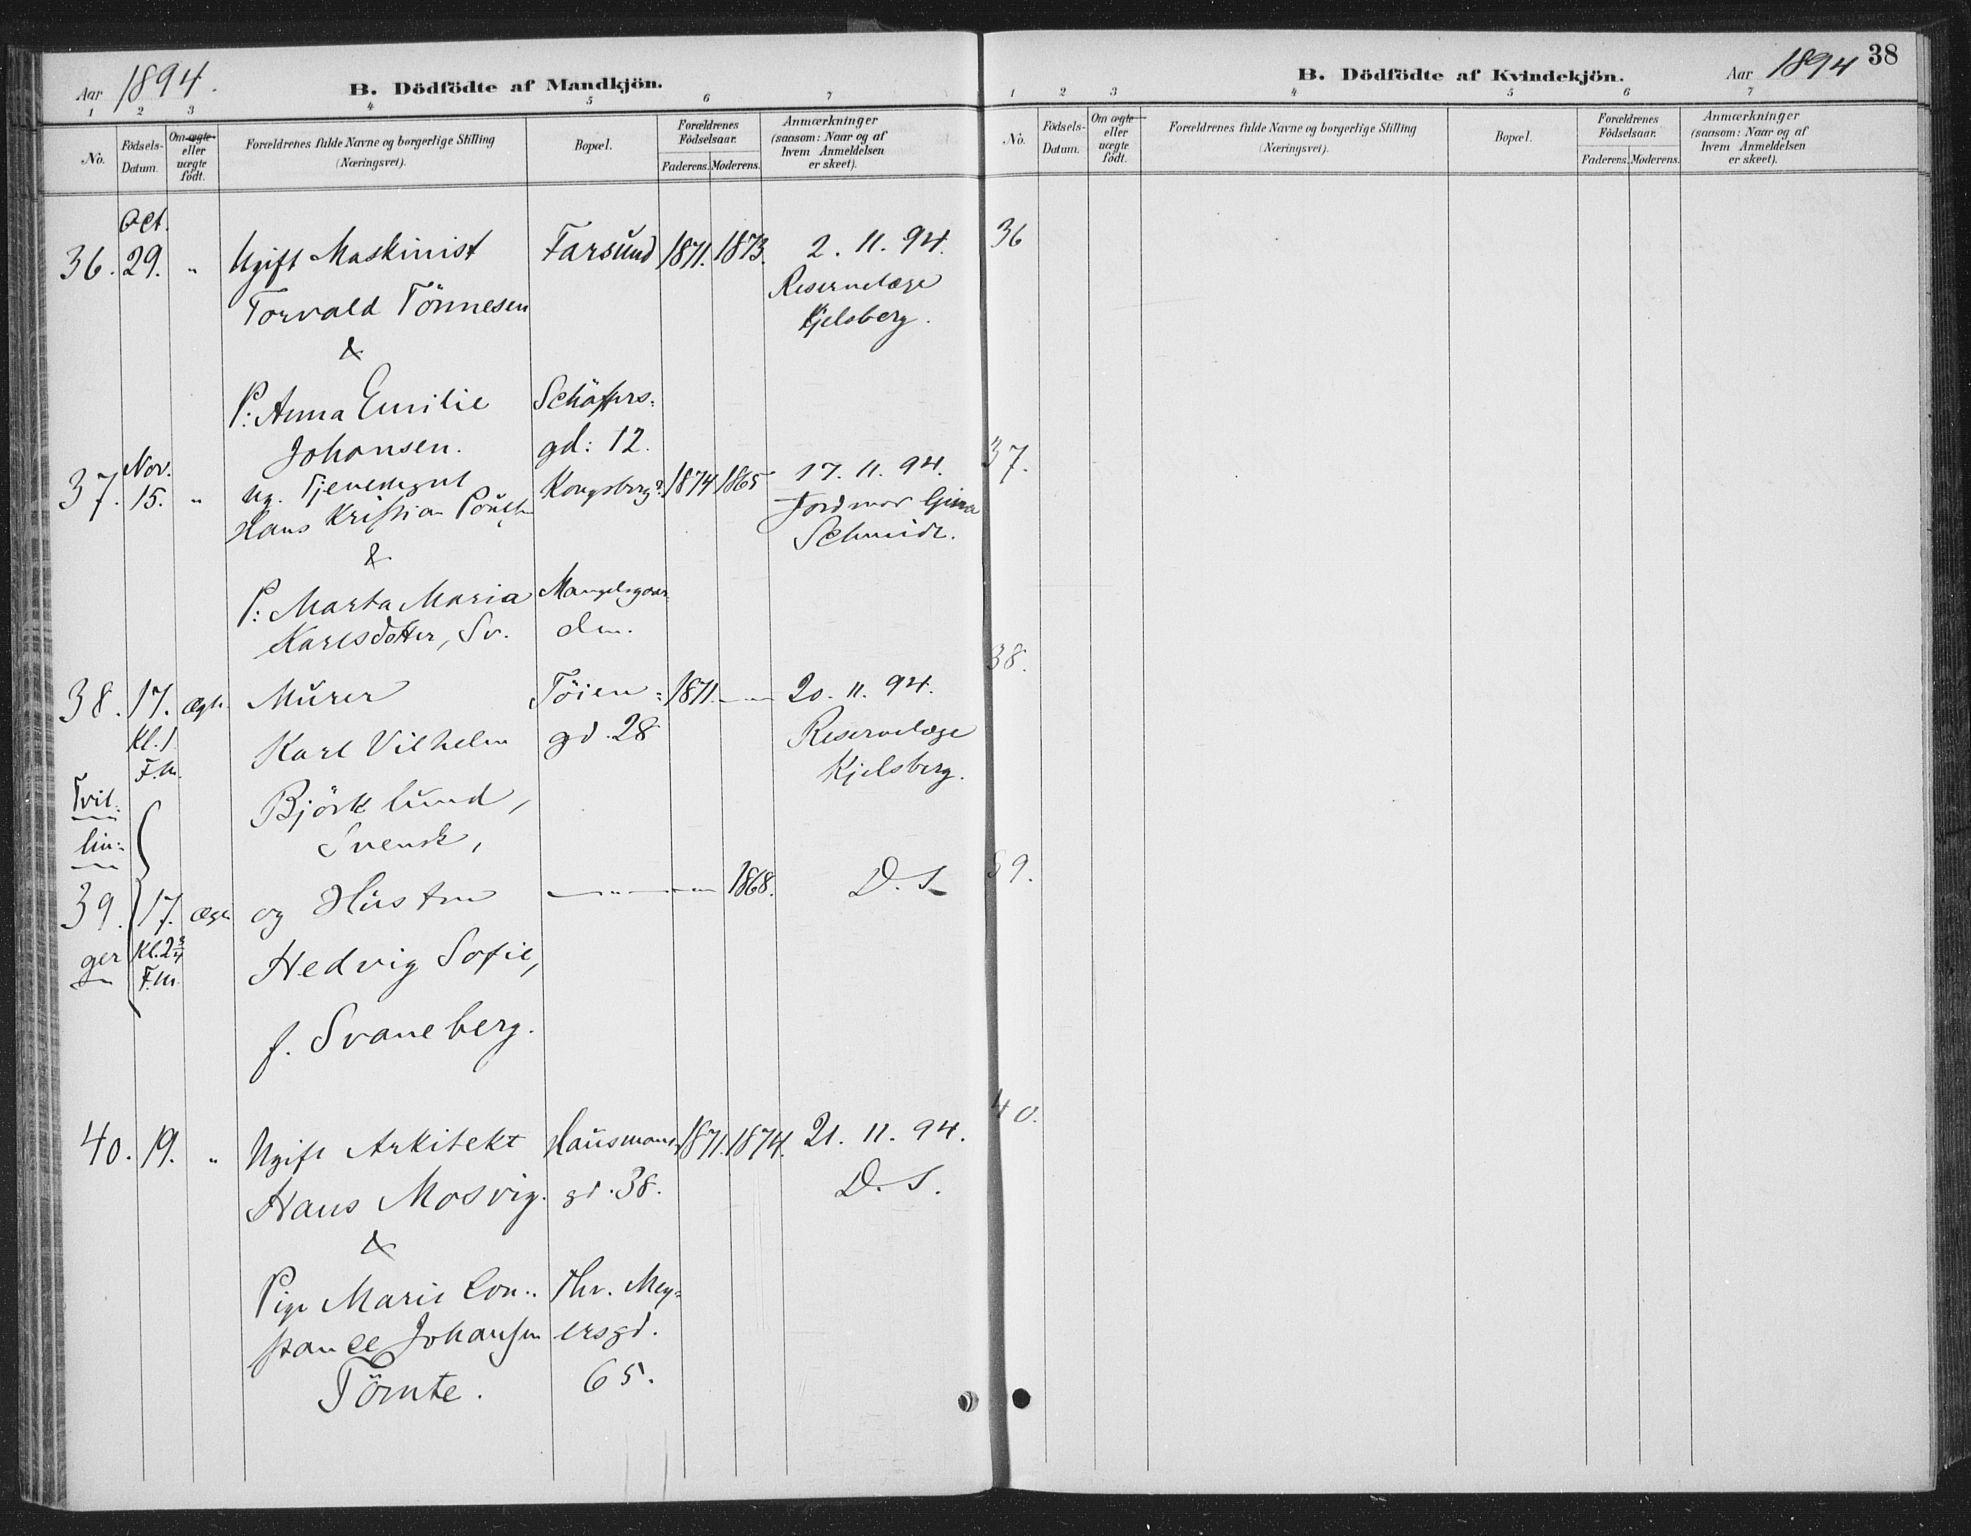 Aar 1894.
B. Dödfödte af Mandkjön.
1 2 3 4 5 6 7
No.
Födsels-
Datum.
Om ægte
eller
uægte
födt.
Forældrenes fulde Navne og borgerlige Stilling
(Næringsvei).
Bopæl.
Forældrenes
Födselsaar.
Faderens. Moderens.
Anmærkninger
(saasom: Naar og af
hvem Anmeldelsen
er skeet).
Oct.
36. 29. " Ugift Maskinist Farsund 1871. 1873. 2. 11. 94.
Torvald Tönnesen Reservelæge
& Kjelsberg.
P: Anna Emilie Schäffers-
Johansen. gd: 12.
Nov.
37. 15. " Ug. Tjenestgut Kongsberg? 1874 1865 17. 11. 94.
Hans Kristian Jordmor Gina
& Schmidt.
P: Marta Maria Mangelsgaar-
Karlsdotter, Sv. den.
38. 17. ægte Murer Töien- 1871. — 20. 11. 94.
Kl. 1 Karl Vilhelm gd. 28 Reservelæge
F.m. Kjelsberg.
Tvil- Björklund,
lin- Svensk,
39. 17. ægte og Hustru — " — 1868. D. S.
ger Kl. 2 3/4 Hedvig Sofie,
F.m.
f. Svaneberg.
40. 19. " Ugift Arkitekt Hausmans- 1871. 1874. 21. 11. 94.
Hans Mosvig. gd. 38. D. S.
&
Pige Marie Con- Thv. Mey-
stance Johansen ersgd.
Tömte. 65.
B. Dödfödte af Kvindekjön.
Aar 1894
38
1 2 3 4 5 6 7
No.
Födsels-
Datum.
Om ægte
eller
uægte
födt.
Forældrenes fulde Navne og borgerlige Stilling
(Næringsvei).
Bopæl.
Forældrenes
Födselsaar.
Faderens. Moderens.
Anmærkninger
(saasom: Naar og af
hvem Anmeldelsen
er skeet).
36
37.
38.
39.
40.